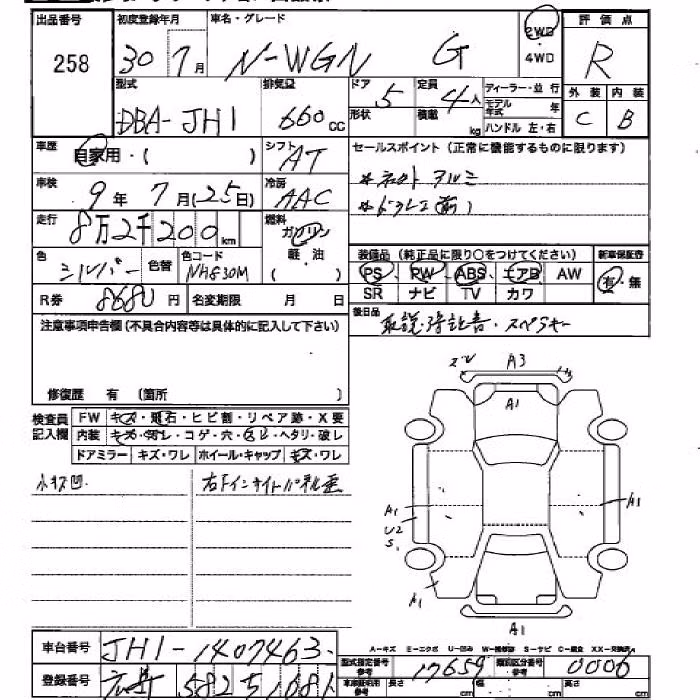 出品番号 初度登録年月 車名・グレード 2WD 評価点
258 30 7月 N-WGN G 4WD R
型式 排気量 ドア 定員 ディーラー・並行 外装 内装
DBA-JH1 660cc 5 4人 モデル年式 年 C B
形状 積載 kg ハンドル 左・右
車歴 自家用・( ) シフト AT セールスポイント(正常に機能するものに限ります)
車検 9年7月(25日) 冷房 AAC
走行 8万2千200km 燃料 ガソリン 軽・油 ( )
装備品(純正品に限り○をつけてください) 新車保証書
色 シルバー 色替 色コード NH830M PS PW ABS エアB AW 有・無
SR ナビ TV カワ
R券 8680円 名変期限 月 日 後日品
取説・保証書・スペアキー
注意事項申告欄(不具合内容等は具体的に記入して下さい)
修復歴 有 (箇所 )
A3
A1
検査員記入欄 FW キズ・飛石・ヒビ割・リペア跡・X要
内装 キズ・汚レ・コゲ・穴・ヘタリ・破レ
ドアミラー キズ・ワレ ホイール・キャップ キズ・ワレ
小キズ凹
A1 A1
U2
S1
A1
A1
A-キズ E-エクボ U-凹み W-補修跡 S-サビ C-腐食 XX-交換済
車台番号 JH1-1407463
型式指定番号 参考 17659 類別区分番号 参考 0006
登録番号 582
長さ cm 幅 cm 高さ cm